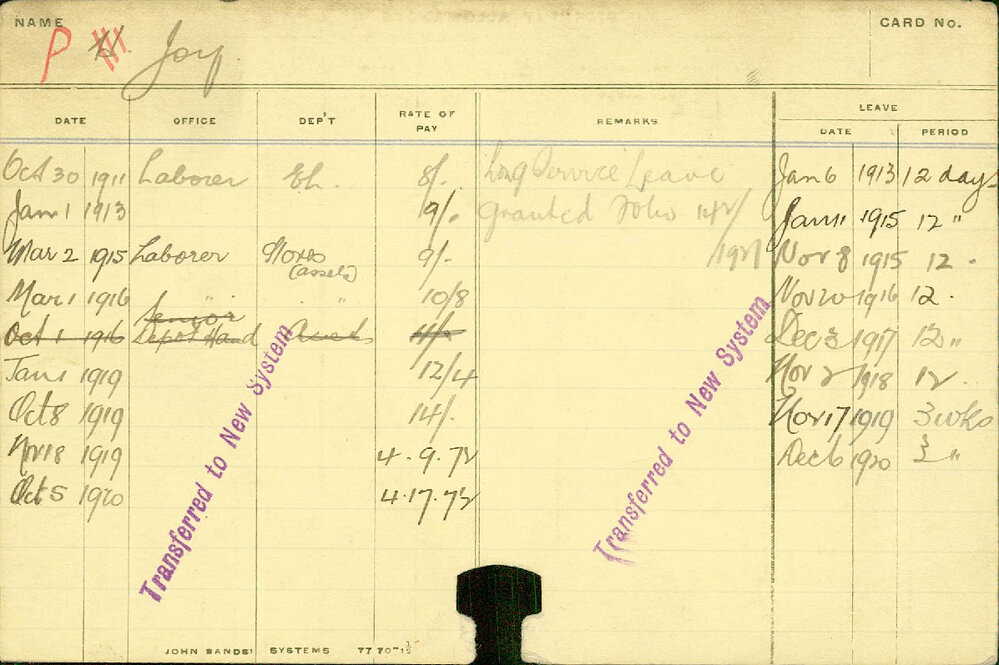 NAME CARD No.
P H Joy
LEAVE
DATE OFFICE DEP'T RATE OF PAY REMARKS DATE PERIOD
Oct 30 1911 Laborer El. 8/- Long Service Leave Jan 6 1913 12 days
Jan 1 1913 9/- Granted Folio Jan 11 1915 12 "
Mar 2 1915 Laborer Stores (Assets) 9/- /1921 Nov 8 1915 12 "
Mar 1 1916 " " 10/8 Nov 20 1916 12 "
Oct 1 1916 Senior Depot Hand Assets 11/- Dec 3 1917 12 "
Jan 1 1919 12/4 Nov 2 1918 12 "
Oct 8 1919 14/- Nov 17 1919 3 wks
Nov 18 1919 4.9.7½ Dec 6 1920 3 "
Oct 5 1920 4.17.7½
Transferred to New System
Transferred to New System
JOHN SANDS' SYSTEMS 77 70